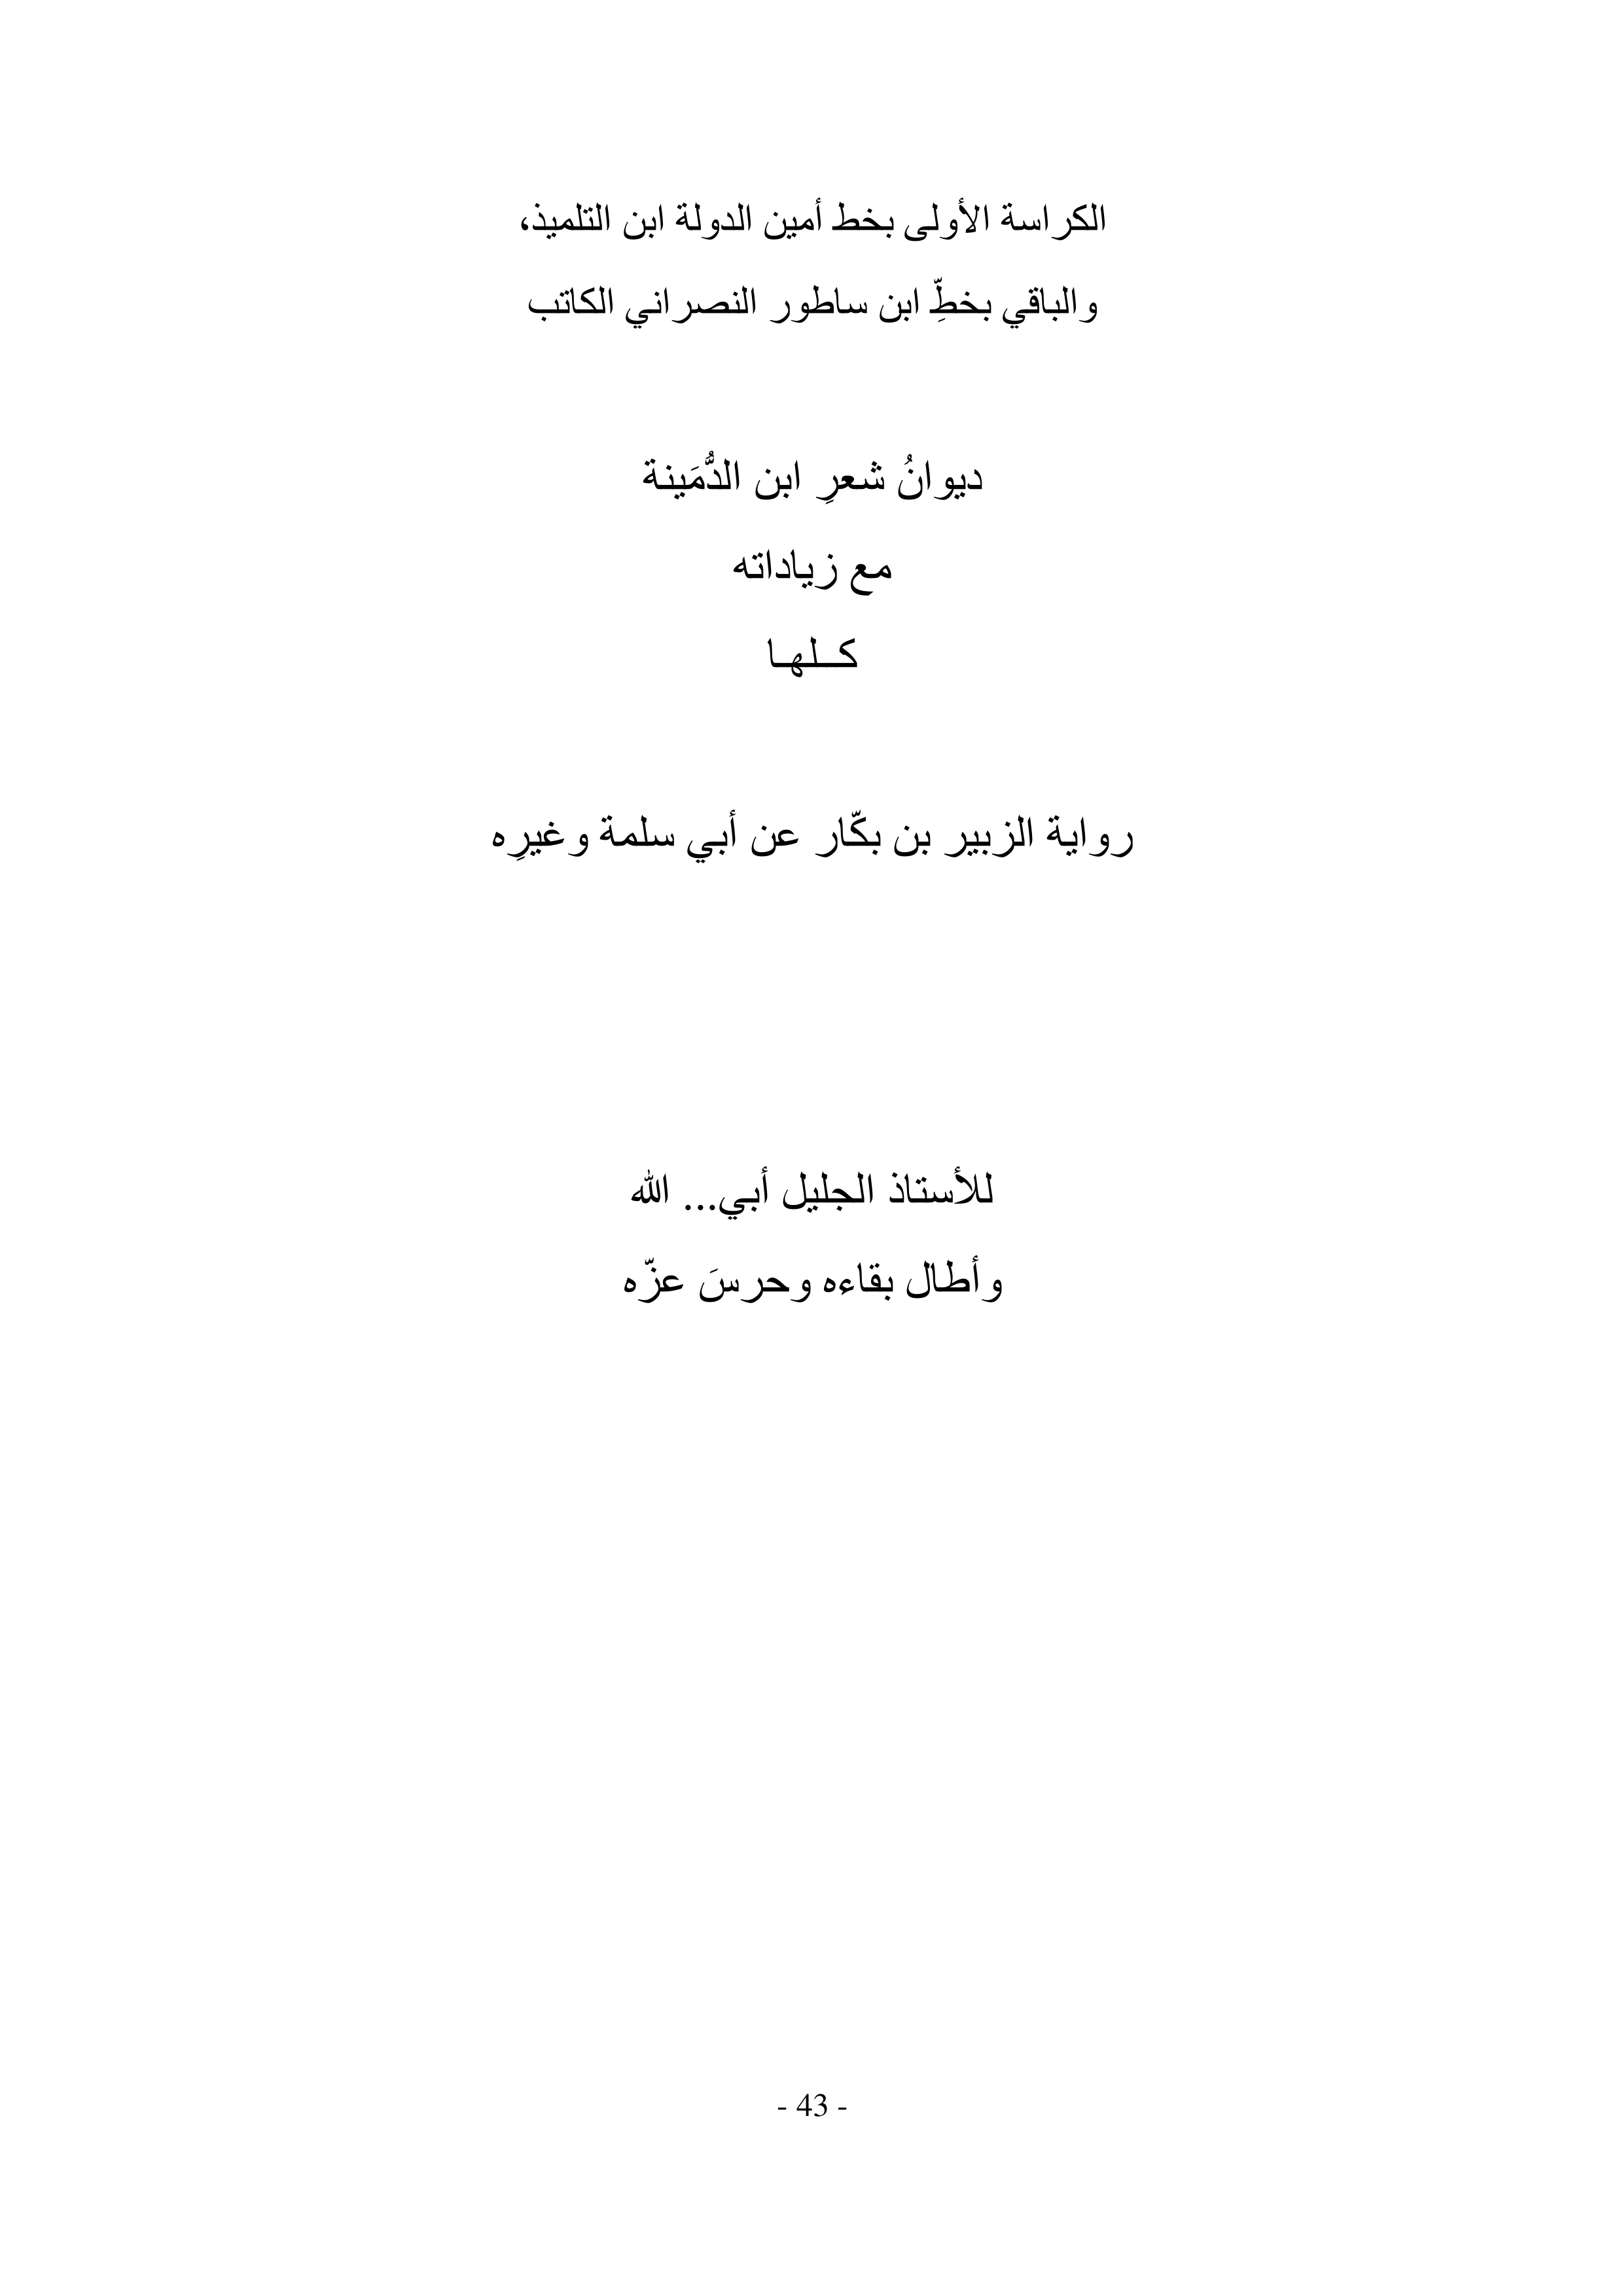 الكراسة الأولى بخط أمين الدولة ابن التلميذ،
والباقي بخطِّ ابن ساطور النصراني الكاتب
ديوانُ شعرِ ابن الدُّمَينة
مع زياداته
كــلهـا
رواية الزبير بن بكّار عن أبي سلمة وغيرِه
للأستاذ الجليل أبي... الله
وأطال بقاءه وحرسَ عزّه
- 43 -